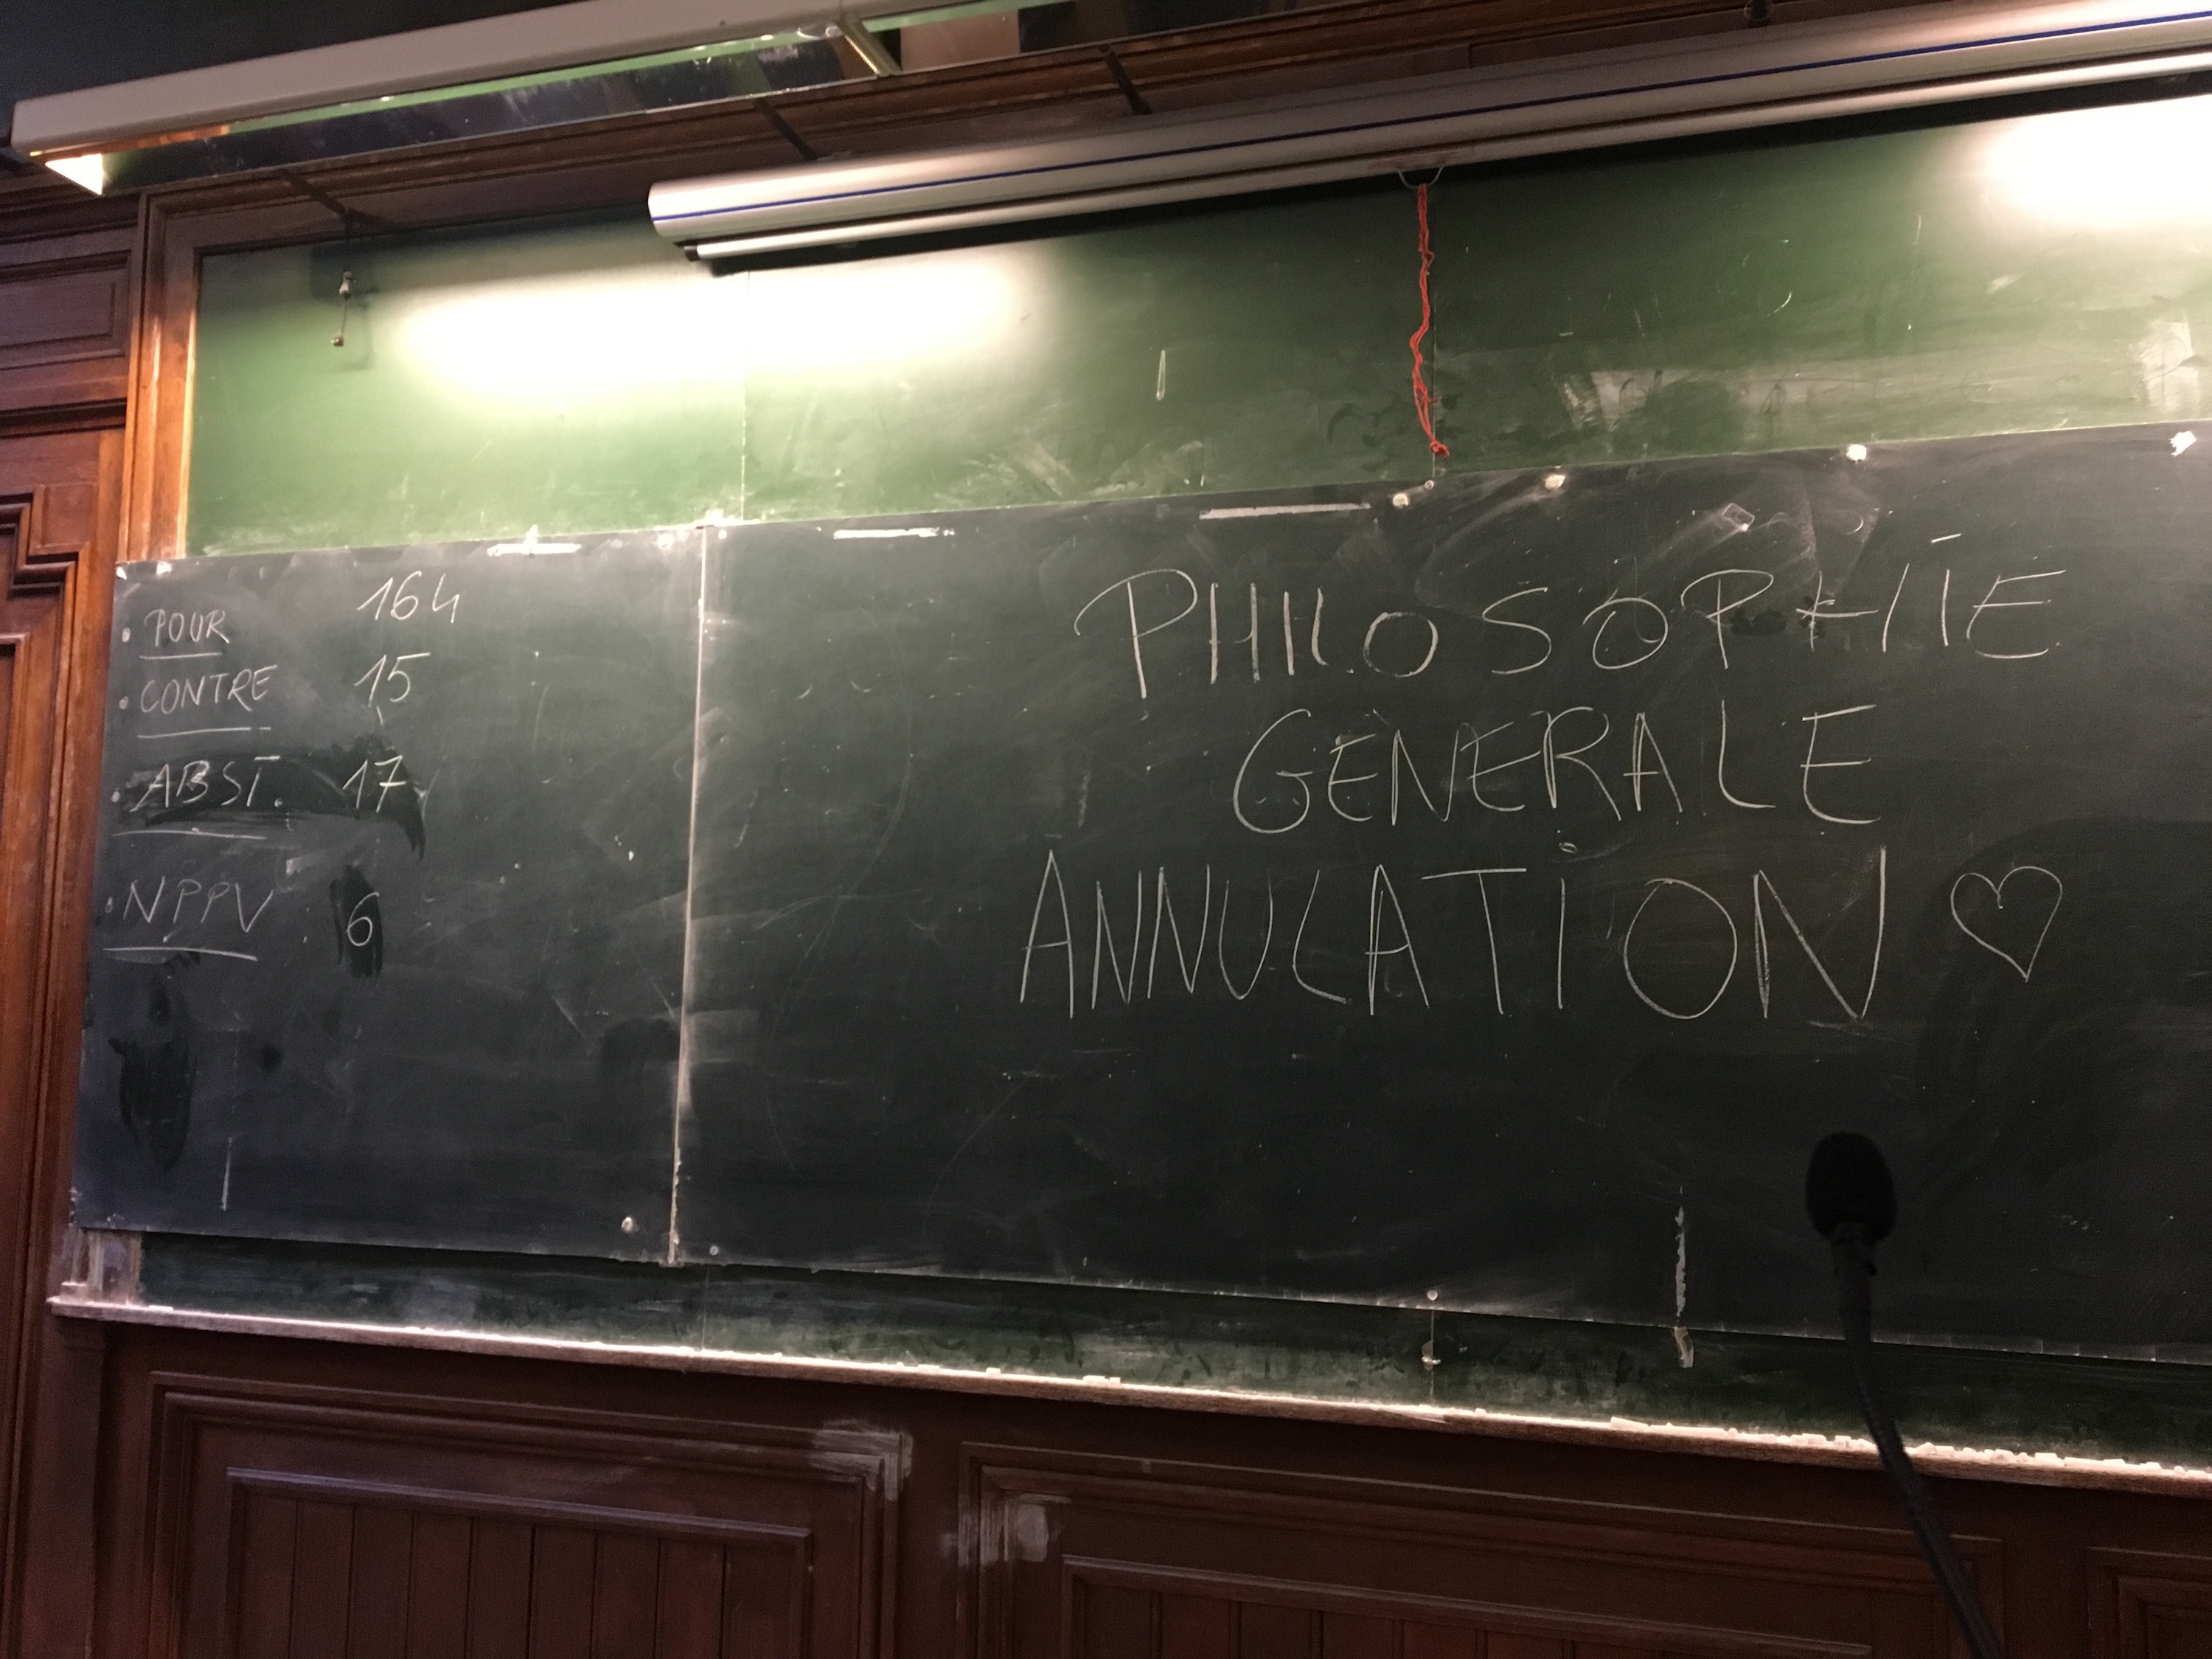 • POUR 164
• CONTRE 15
• ABST. 17
• NPPV 6
PHILOSOPHIE
GENERALE
ANNULATION ♡